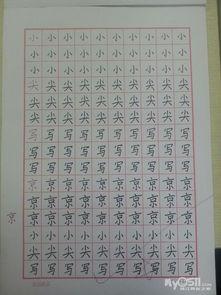 小小小小小小小小小
小小小小小小小小小
小小小小小小小小小
尖尖尖尖尖尖尖尖尖
尖尖尖尖尖尖尖尖尖
尖尖尖尖尖尖尖尖尖
写写写写写写写写写
写写写写写写写写写
写写写写写写写写写
京京京京京京京京京
京京京京京京京京京
京京京京京京京京京
京
小小小小小小小小小
尖尖尖尖尖尖尖尖尖
写写写写写写写写写